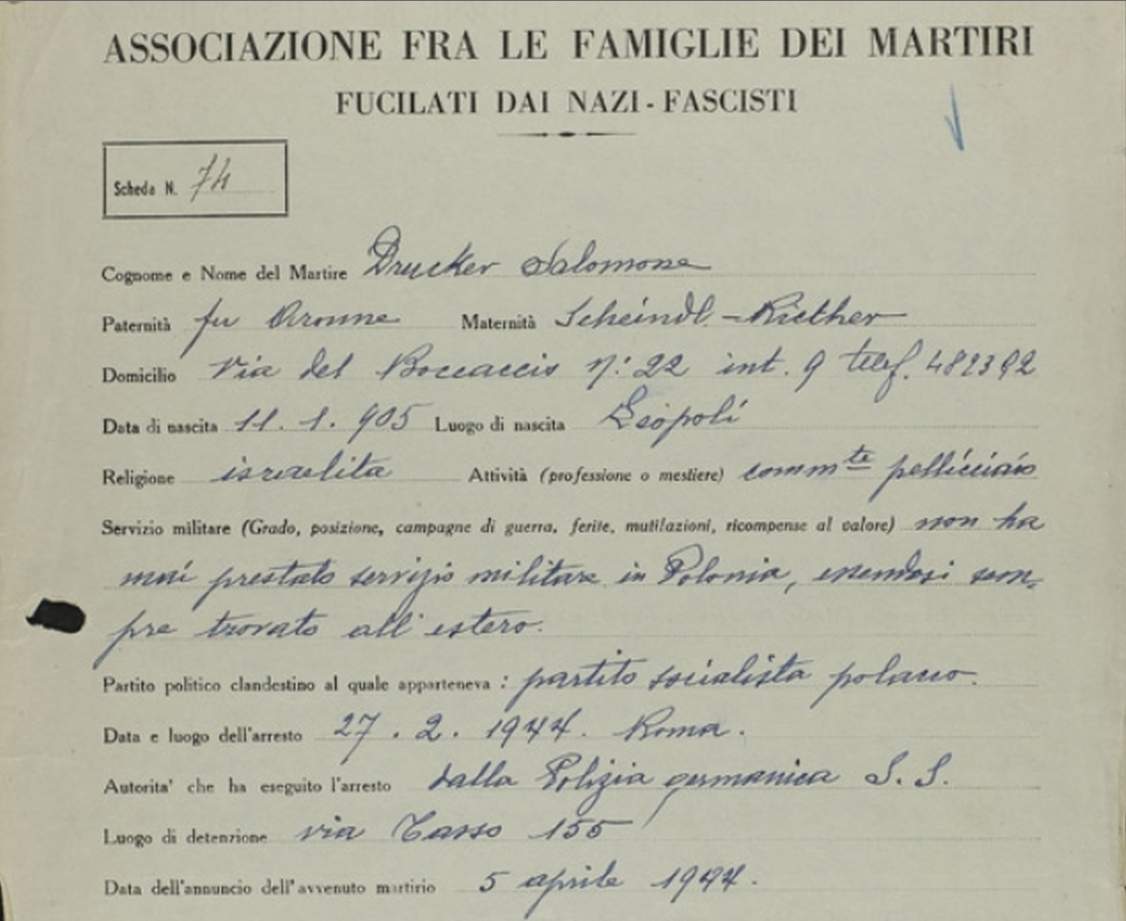 ASSOCIAZIONE FRA LE FAMIGLIE DEI MARTIRI
FUCILATI DAI NAZI-FASCISTI
Scheda N. 74
Cognome e Nome del Martire Drucker Salomone
Paternità fu Aronne Maternità Scheindl-Riether
Domicilio Via del Boccaccio N: 22 int. 9 telef. 482392
Data di nascita 11. 1. 905 Luogo di nascita Leopoli
Religione israelita Attività (professione o mestiere) comm.te pellicciaio
Servizio militare (Grado, posizione, campagne di guerra, ferite, mutilazioni, ricompense al valore) non ha
mai prestato servizio militare in Polonia, essendosi sem-
pre trovato all'estero.
Partito politico clandestino al quale apparteneva : partito socialista polacco.
Data e luogo dell'arresto 27. 2. 1944. Roma.
Autorita' che ha eseguito l'arresto dalla Polizia germanica S. S.
Luogo di detenzione via Tasso 155
Data dell'annuncio dell'avvenuto martirio 5 aprile 1944.